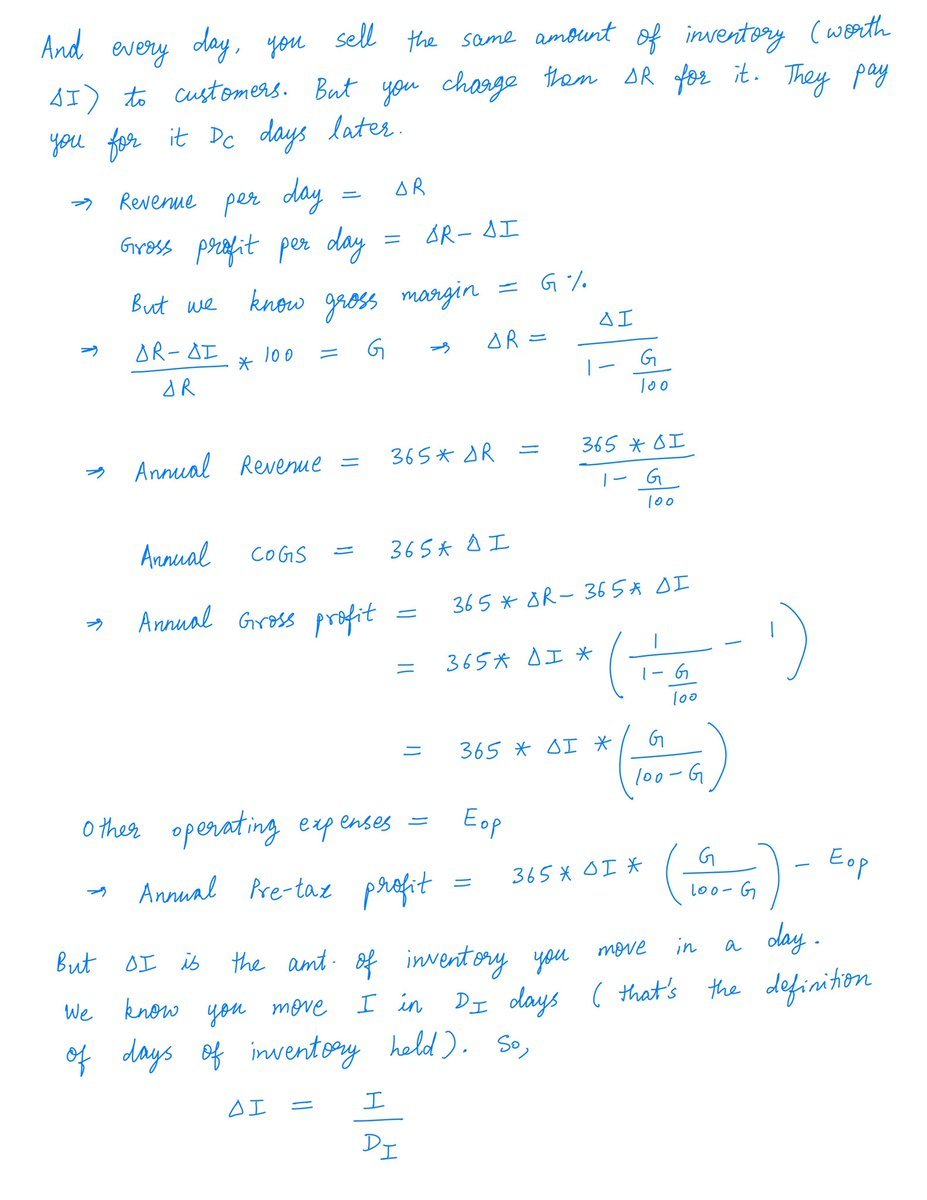 And every day, you sell the same amount of inventory (worth
ΔI) to customers. But you charge them ΔR for it. They pay
you for it D_C days later.
⇒ Revenue per day = ΔR
Gross profit per day = ΔR - ΔI
But we know gross margin = G %.
⇒ (ΔR - ΔI)/ΔR * 100 = G ⇒ ΔR = ΔI/(1 - G/100)
⇒ Annual Revenue = 365 * ΔR = (365 * ΔI)/(1 - G/100)
Annual COGS = 365 * ΔI
⇒ Annual Gross profit = 365 * ΔR - 365 * ΔI
= 365 * ΔI * (1/(1 - G/100) - 1)
= 365 * ΔI * (G/(100 - G))
Other operating expenses = E_op
⇒ Annual Pre-tax profit = 365 * ΔI * (G/(100 - G)) - E_op
But ΔI is the amt. of inventory you move in a day.
We know you move I in D_I days (that's the definition
of days of inventory held). So,
ΔI = I/D_I